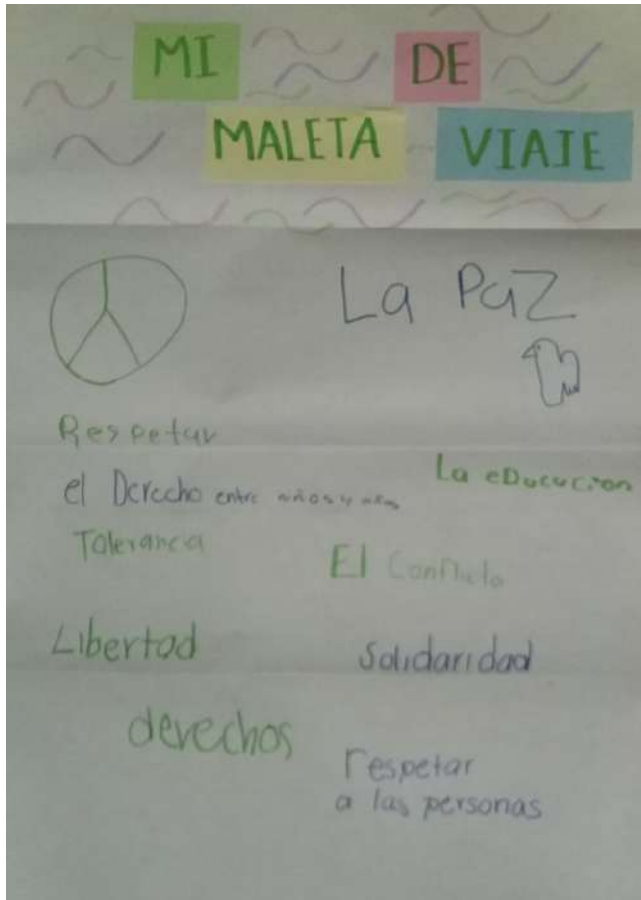 MI DE
MALETA VIAJE
La Paz
Respetar
el Derecho entre niños y niñas
La eDucucion
Tolerancia
El Conflicto
Libertad
Solidaridad
derechos
respetar
a las personas